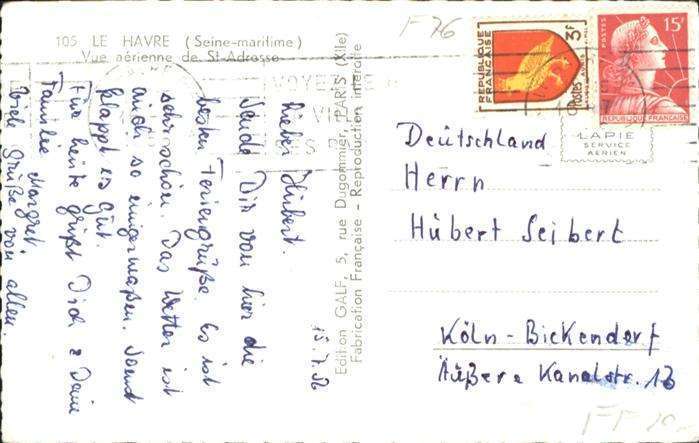 105 LE HAVRE (Seine-maritime)
Vue aérienne de St-Adresse
15.7.56
Lieber Hubert.
Sende Dir von hier die
besten Feriengrüße. Es ist
sehr schön. Das Wetter ist
auch so einigermaßen. Sonst
klappt es gut.
Für heute grüßt Dich & Deine
Familie Margret.
Viele Grüße von allen.
Edition GALF, 5, rue Dugommier, PARIS (XIIe)
Fabrication Française - Reproduction interdite
F76
REPUBLIQUE FRANÇAISE
3F
POSTES
POSTES
15F
REPUBLIQUE FRANÇAISE
LAPIE
SERVICE
AERIEN
Deutschland
Herrn
Hubert Seibert
Köln-Bickendorf
Äußere Kanalstr. 13